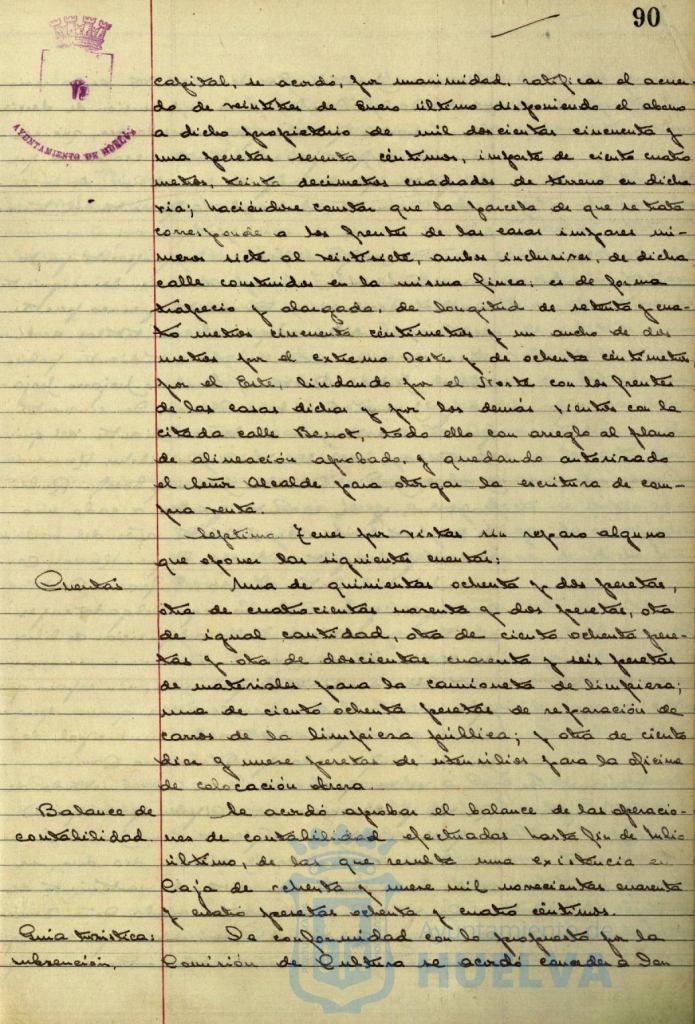 90
AYUNTAMIENTO DE HUELVA
capital, se acordó, por unanimidad, ratificar el acuer-
do de veintitres de Enero último disponiendo el abono
a dicho propietario de mil doscientas cincuenta y
una pesetas sesenta céntimos, importe de ciento cuatro
metros, treinta decímetros cuadrados de terreno en dicha
via; haciéndose constar que la parcela de que se trata
corresponde a los frentes de las casas impares nú-
meros siete al veintisiete, ambos inclusives, de dicha
calle construidas en la misma finca; es de forma
trapecio y alargada, de longitud de setenta y cua-
tro metros cincuenta céntimetros y un ancho de dos
metros por el extremo Oeste y de ochenta céntimetros
por el Este, lindando por el Norte con los frentes
de las casas dichas y por los demás vientos con la
citada calle Benot, todo ello con arreglo al plano
de alineación aprobado, y quedando autorizado
el Señor Alcalde para otorgar la escritura de com-
pra venta.
Septimo. Tener por vistas sin reparo alguno
que oponer las siguientes cuentas:
Cuentas
Una de quinientas ochenta y dos pesetas,
otra de cuatrocientas noventa y dos pesetas, otra
de igual cantidad, otra de ciento ochenta pese-
tas y otra de doscientas cuarenta y seis pesetas
de materiales para la camioneta de limpieza;
una de ciento ochenta pesetas de reparación de
carros de la limpieza pública; y otra de ciento
diez y nueve pesetas de utensilios para la oficina
de colocación obrera.
Balance de
contabilidad
Se acordó aprobar el balance de las operacio-
nes de contabilidad efectuadas hasta fin de Julio
último, de las que resulta una existencia en
Caja de ochenta y nueve mil novecientas cuarenta
y cuatro pesetas ochenta y cuatro céntimos.
Guia turistica:
subvención.
De conformidad con lo propuesto por la
Comisión de Cultura se acordó conceder a Don
Ayuntamiento de
HUELVA